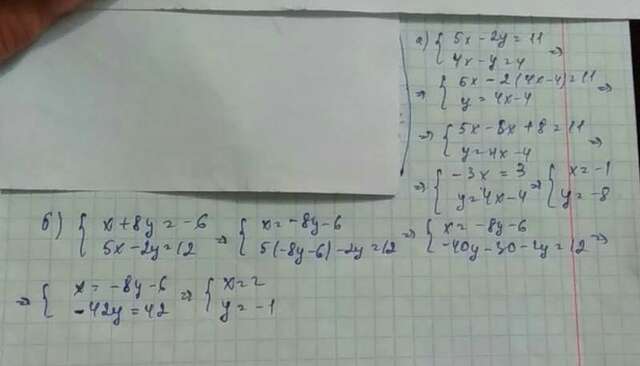 а) { 5x - 2y = 11
4x - y = 4 ⇒
⇒ { 5x - 2(4x-4) = 11
y = 4x - 4 ⇒
⇒ { 5x - 8x + 8 = 11
y = 4x - 4 ⇒
⇒ { -3x = 3
y = 4x - 4 ⇒ { x = -1
y = -8
б) { x + 8y = -6
5x - 2y = 12 ⇒ { x = -8y - 6
5(-8y-6) - 2y = 12 ⇒ { x = -8y - 6
-40y - 30 - 2y = 12 ⇒
⇒ { x = -8y - 6
-42y = 42 ⇒ { x = 2
y = -1